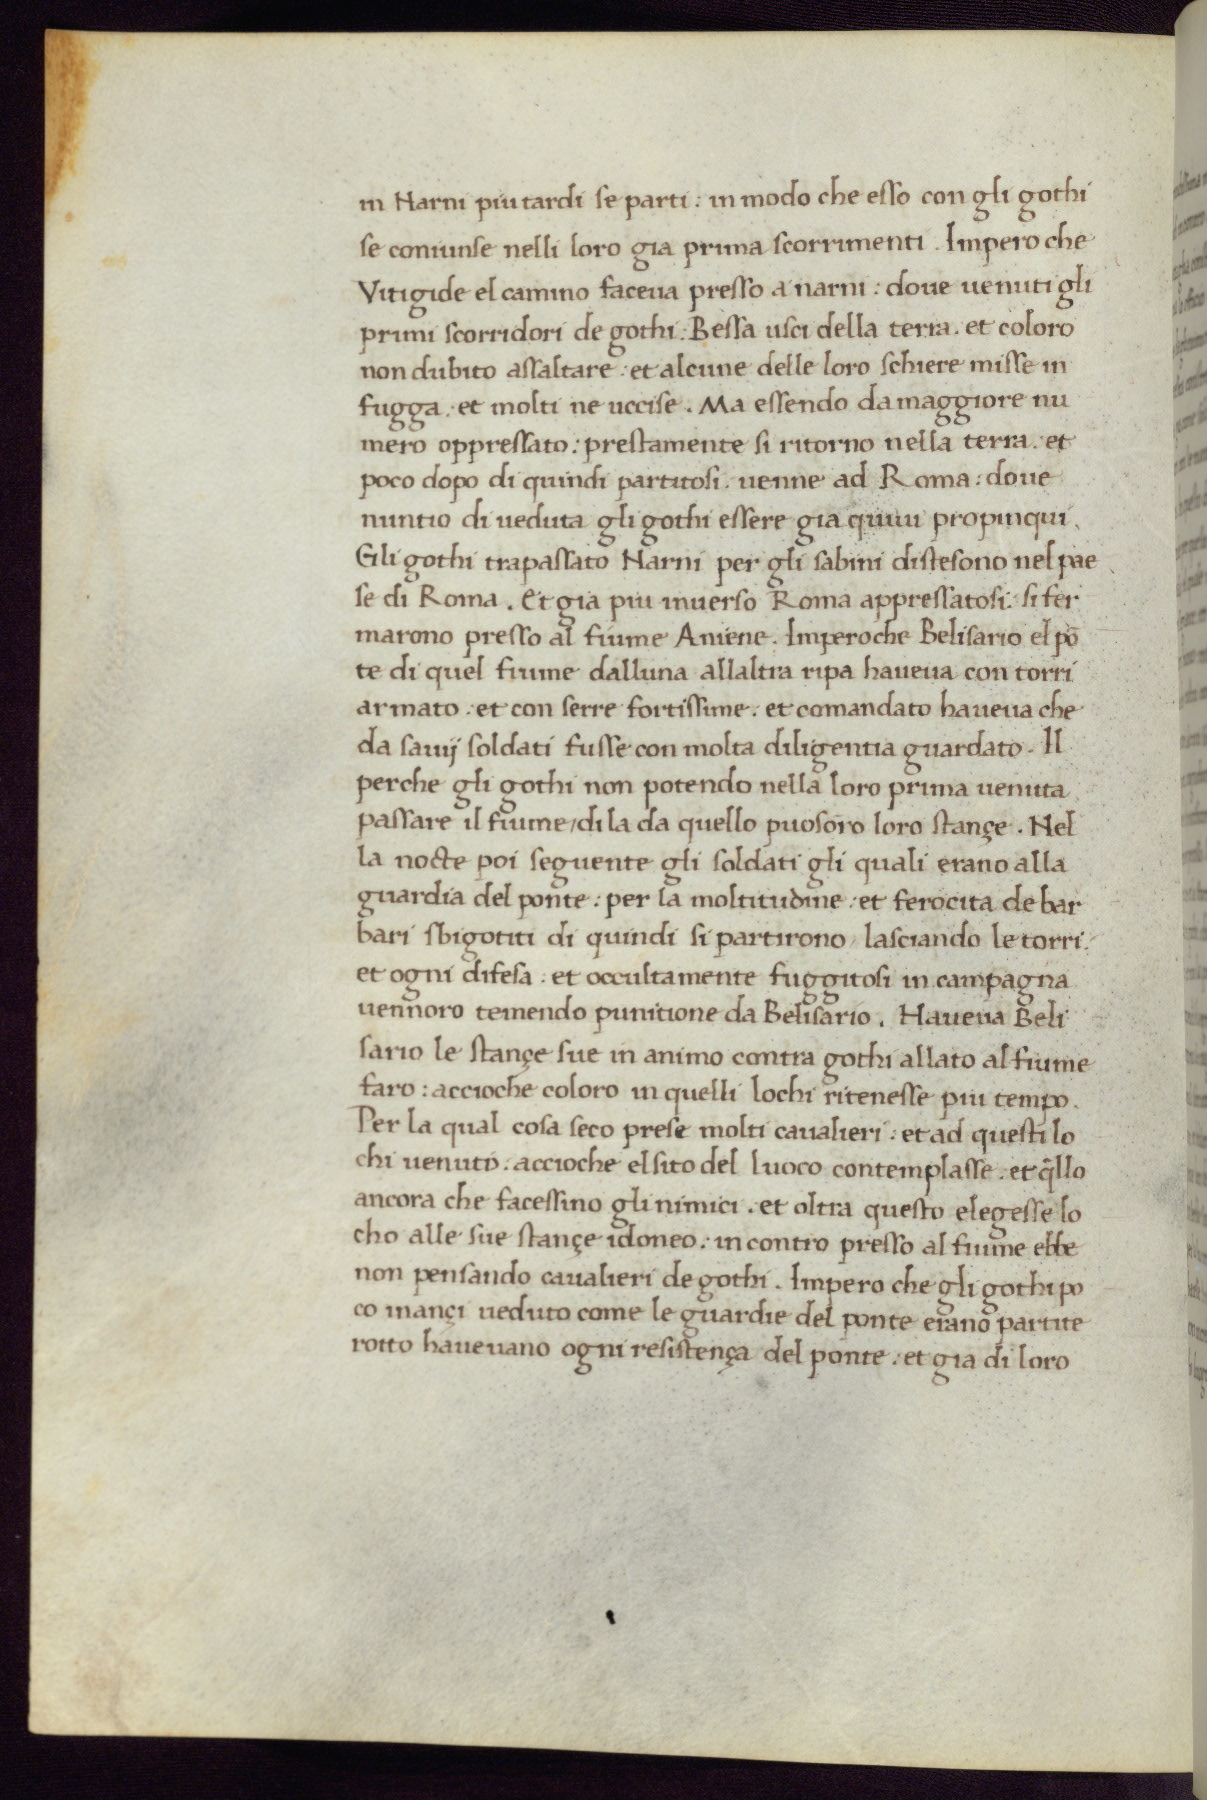 in Narni piu tardi se parti : in modo che esso con gli gothi
se coniunse nelli loro gia prima scorrimenti . Impero che
Vitigide el camino faceua presso a narni : doue uenuti gli
primi scorridori de gothi : Bessa usci della terra . et coloro
non dubito assaltare . et alcune delle loro schiere misse in
fugga . et molti ne uccise . Ma essendo da maggiore nu
mero oppressato : prestamente si ritorno nella terra . et
poco dopo di quindi partitosi . uenne ad Roma : doue
nuntio di ueduta gli gothi essere gia quiui propinqui .
Gli gothi trapassato Narni per gli sabini distesono nel pae
se di Roma . Et gia piu inuerso Roma appressatosi . si fer
marono presso al fiume Aniene . Imperoche Belisario el põ
te di quel fiume dalluna allaltra ripa haueua con torri
armato . et con serre fortissime . et comandato haueua che
da sauij soldati fusse con molta diligentia guardato . Il
perche gli gothi non potendo nella loro prima uenuta
passare il fiume / di la da quello puosoro loro stançe . Nel
la nocte poi seguente gli soldati gli quali erano alla
guardia del ponte : per la moltitudine . et ferocita de bar
bari sbigotiti di quindi si partirono / lasciando le torri .
et ogni difesa . et occultamente fuggitosi in campagna
uennoro temendo punitione da Belisario . Haueua Beli
sario le stançe sue in animo contra gothi allato al fiume
faro : accioche coloro in quelli lochi ritenesse piu tempo .
Per la qual cosa seco prese molti caualieri : et ad questi lo
chi uenuto . accioche el sito del luoco contemplasse . et q̃llo
ancora che facessino gli nimici . et oltra questo elegesse lo
cho alle sue stançe idoneo . incontro presso al fiume ebbe
non pensando caualieri de gothi . Impero che gli gothi po
co inançi ueduto come le guardie del ponte erano partite
rotto haueuano ogni resistença del ponte . et gia di loro